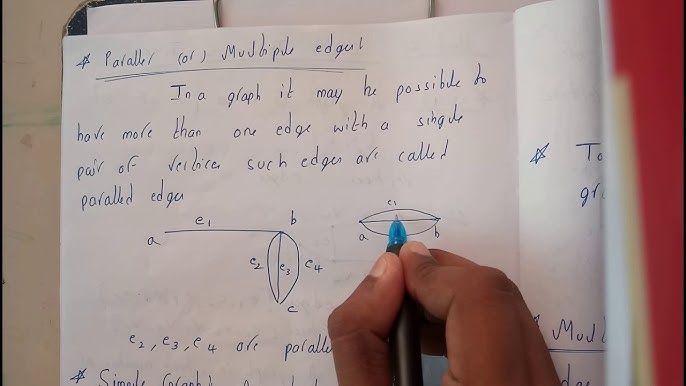 * Parallel (or) Multiple edges
In a graph it may be possible to
have more than one edge with a single
pair of vertices such edges are called
paralled edges
e1
a
b
e2
e3
e4
c
e1
a
b
e2, e3, e4 are paralle
* Simple Graph
* To
gra
* Mul
edge